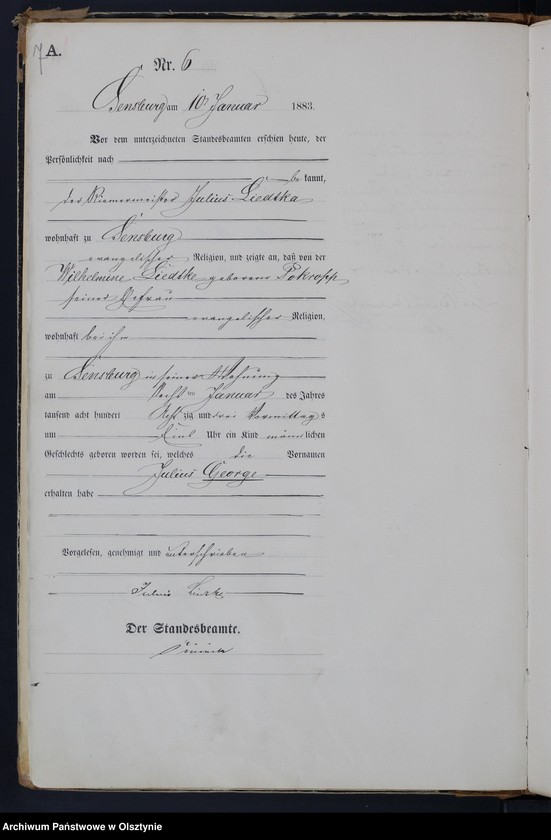 A.
Nr. 6
Sensburg am 10 Januar 1883.
Vor dem unterzeichneten Standesbeamten erschien heute, der
Persönlichkeit nach
be kannt,
der Riemermeister Julius Liedtka
wohnhaft zu Sensburg
evangelischer Religion, und zeigte an, daß von der
Wilhelmine Liedtke geborene Pokropp
seiner Ehefrau
evangelischer Religion,
wohnhaft bei ihm
zu Sensburg in seiner Wohnung
am Januar des Jahres
tausend acht hundert Acht zig und drei Vormittag s
um Uhr ein Kind männlichen
Geschlechts geboren worden sei, welches die Vornamen
Julius George
erhalten habe
Vorgelesen, genehmigt und unterschrieben
Julius
Der Standesbeamte.
Archiwum Państwowe w Olsztynie